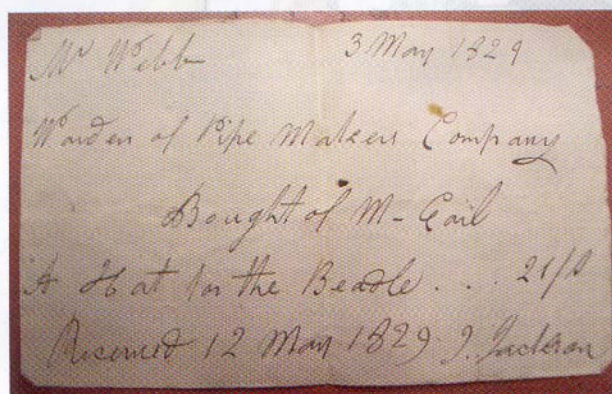 Mr Webb 3 May 1829
Warden of Pipe Makers Company
Bought of M- Cail
A Hat for the Beadle . . . 21/0
Received 12 May 1829. J. Jackson